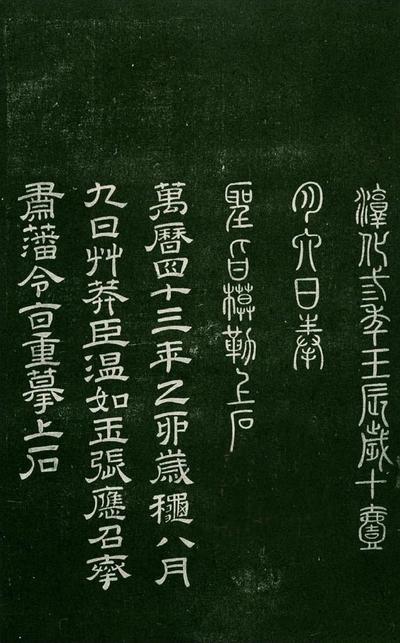 淳化三年壬辰歲十壹
月六日奉
聖旨模勒上石
萬曆四十三年乙卯歲穐八月
九日艸莽臣温如玉張應召奉
肅藩令旨重摹上石